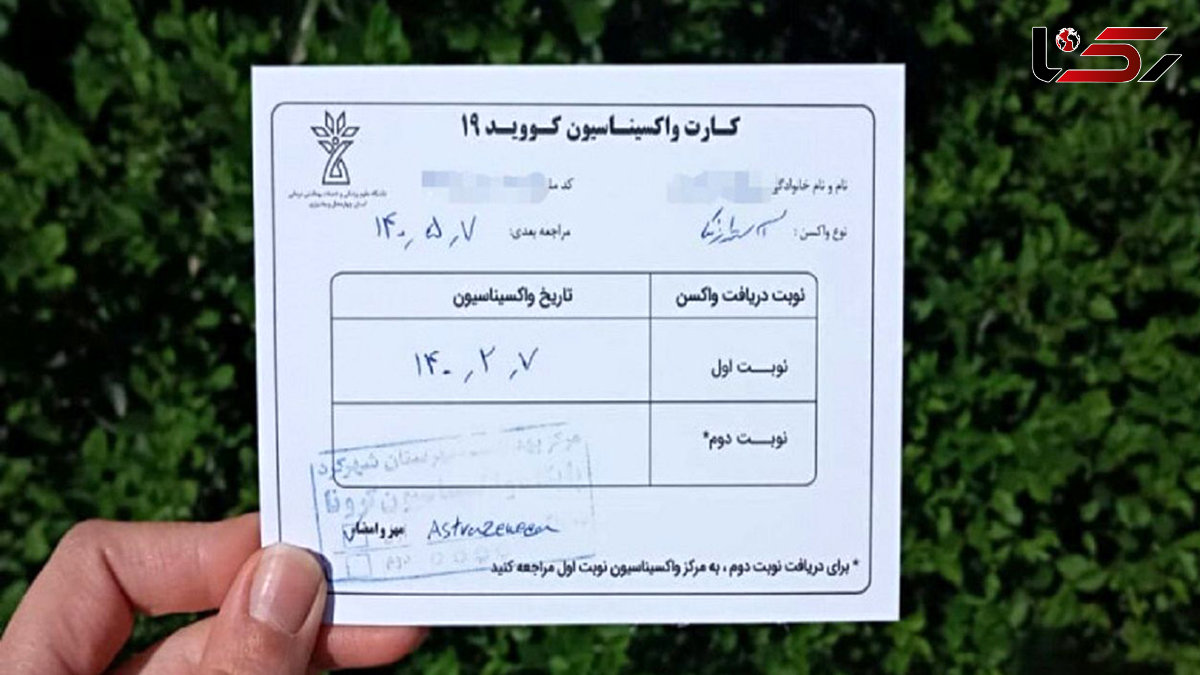 رکنا
کارت واکسیناسیون کووید ۱۹
دانشگاه علوم پزشکی و خدمات بهداشتی درمانی
استان چهارمحال و بختیاری
نام و نام خانوادگی
کد مل
نوع واکسن : آسترازنکا
مراجعه بعدی: ۱۴۰۰٫۵٫۷
نوبت دریافت واکسن
تاریخ واکسیناسیون
نوبت اول
۱۴۰۰٫۲٫۷
نوبت دوم*
مرکز بهداشت شهرستان شهرکرد
واکسیناسیون کرونا
مهر و امضاء
AstraZeneca
دوم
* برای دریافت نوبت دوم ، به مرکز واکسیناسیون نوبت اول مراجعه کنید